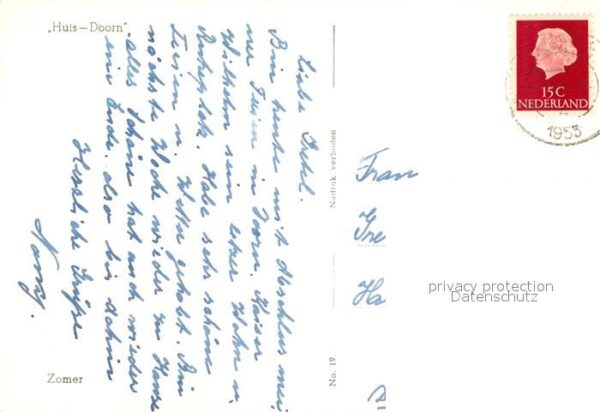 „Huis — Doorn"
Liebe Gretel.
Bin heute mit Abschluss mei-
ner Ferien in Doorn. Kaiser
Wilhelm sein letzter Wohn u.
Ruheplatz. Habe sehr schöne
Ferien u. Wetter gehabt. Bin
nächste Woche wieder zu Hause
alles Schöne hat auch wieder
ein Ende. also bis dahin
Herzliche Grüße
Zomer
Nadruk verboden
No. 19
Frau
15 C
NEDERLAND
1953
privacy protection
Datenschutz